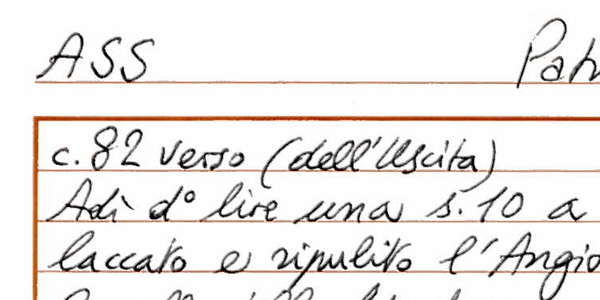 ASS
c. 82 verso (dell'Uscita)
Adì d° lire una s. 10 a
laccato e ripulito l'Angio